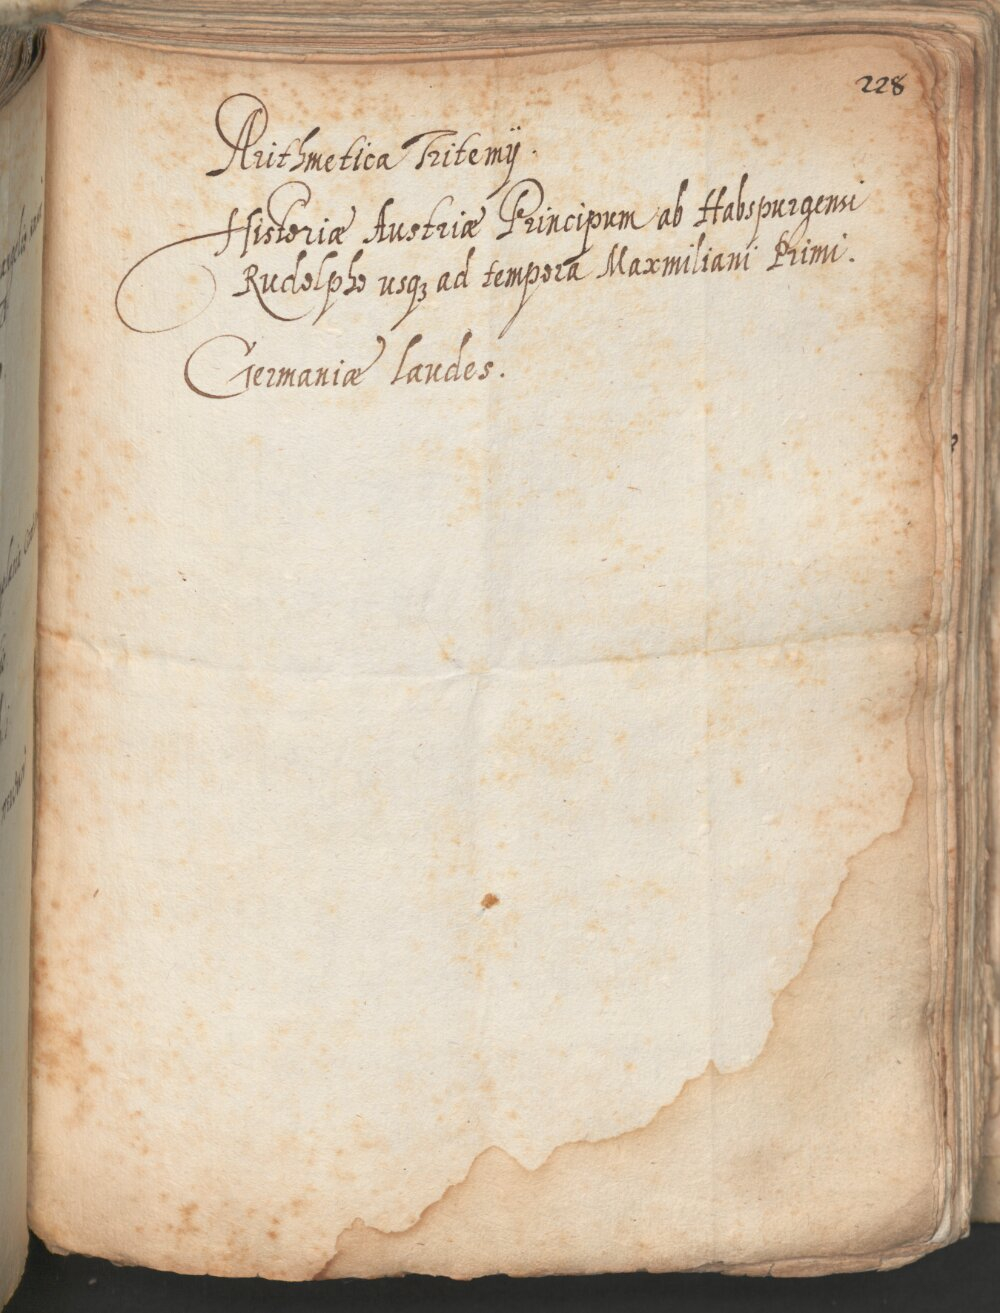 228
Arithmetica Tritemij.
Historiæ Austriæ Principum ab Habspurgensi
Rudolpho usqꝫ ad tempora Maxmiliani Primi.
Germaniæ laudes.